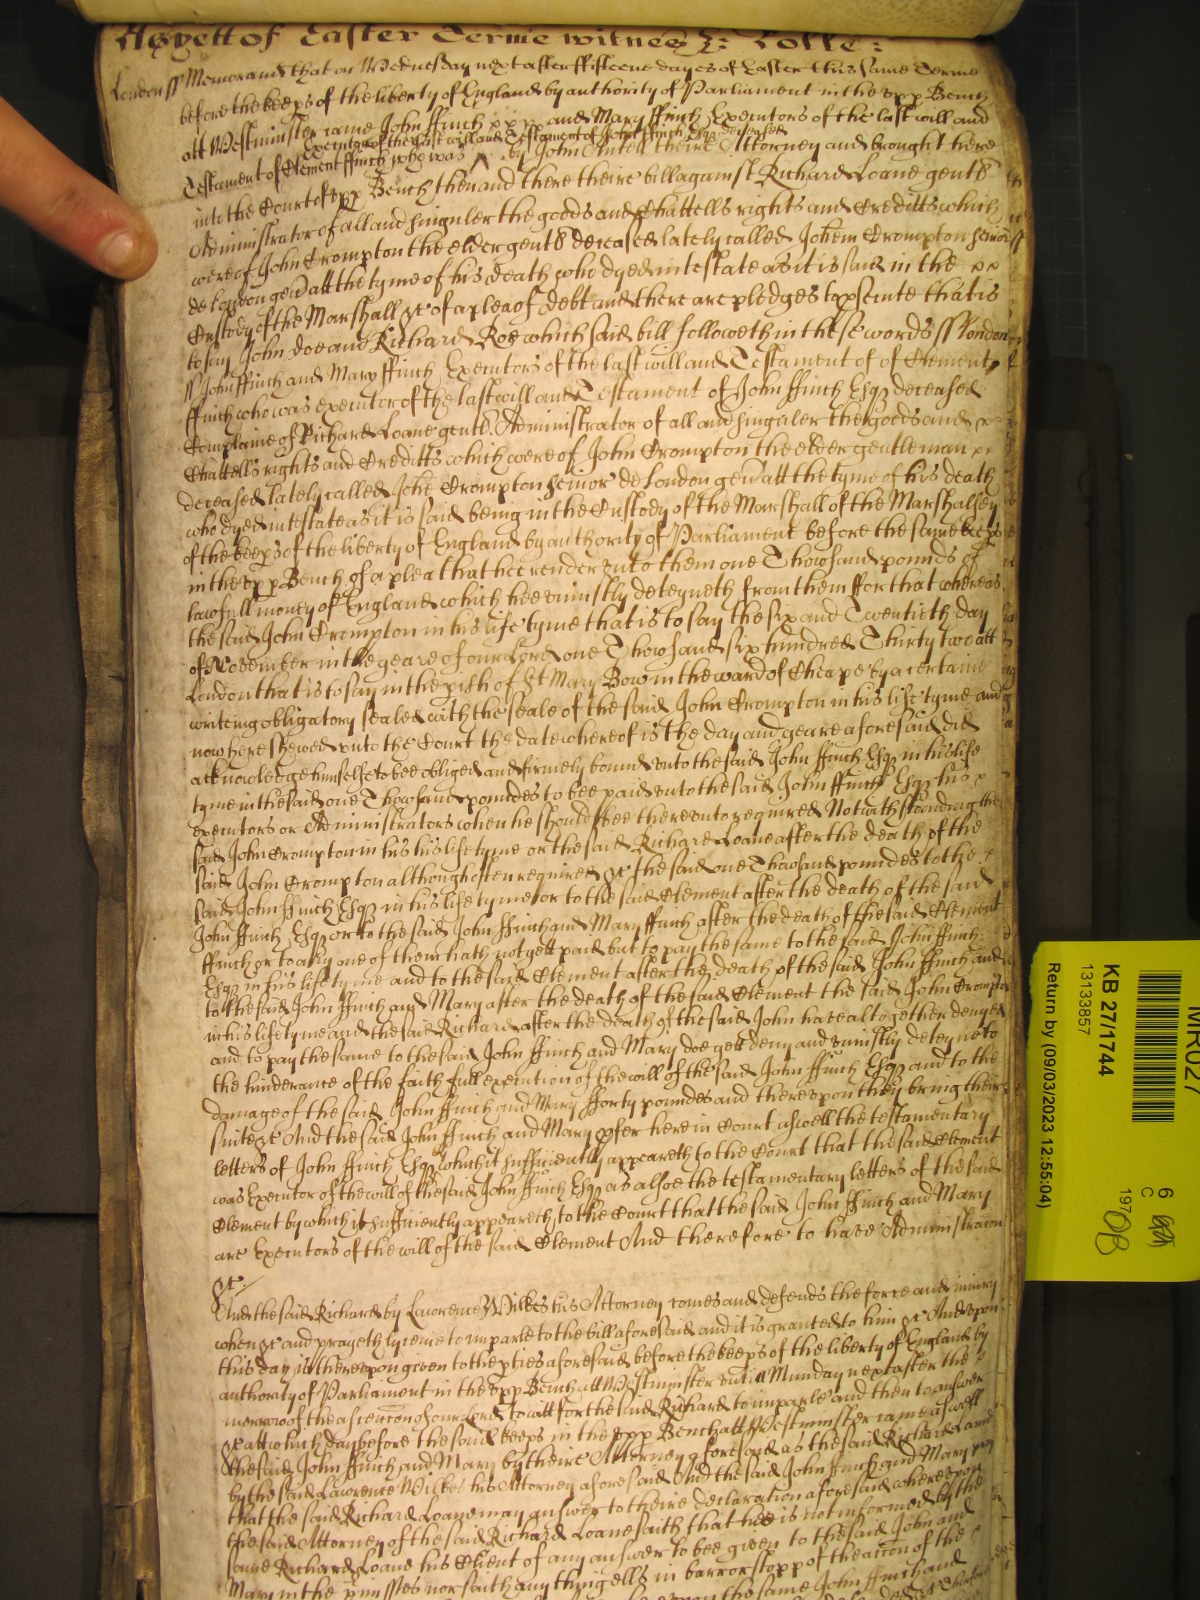 Asyett of Easter Terme witnes H: Rolle:
London ss Memorand that on Wednesday next after fifteene dayes of Easter this same Terme
before the keeps of the liberty of England by authority of Parliament in the upp Bench
att Westminster came John Ffinch and Mary Ffinch Executors of the last will and
Executor of the last will and Testament of John Ffinch Esqr deceased
Testament of Clement Ffinch who was ^ by John Antell theire Attorney and brought here
into the Court of upp Bench then and there theire bill against Richard Loane gent
Administrator of all and singuler the goods and Chattells rights and Creditts which
were of John Crompton the elder gent deceased lately called Johem Crompton senior
de London gen att the tyme of his death who dyed intestate as it is said in the
Custody of the Marshall &c of a plea of debt and there are pledges to pscute that is
to say John Doe and Richard Roe which said bill followeth in these words ss London
ss John Ffinch and Mary Ffinch Executors of the last will and Testament of of Clement
Ffinch who was executor of the last will and Testament of John Ffinch Esqr deceased
Complaine of Richard Loane gent Administrator of all and singuler the goods and
Chattells rights and Creditts which were of John Crompton the elder gentleman
deceased lately called Johe Crompton senior de London gen att the tyme of his death
who dyed intestate as it is said being in the Custody of the Marshall of the Marshalsey
of the keeps of the liberty of England by authority of Parliament before the same keeps
in the upp Bench of a plea that hee render unto them one Thowsand pounds of
lawfull money of England which hee uniustly deteyneth from them ffor that whereas
the said John Crompton in his life tyme that is to say the six and Twentieth day
of November in the yeare of our Lord one Thowsand six hundred Thirty two att
London that is to say in the pish of St Mary Bow in the ward of Cheape by a certaine
writing obligatory sealed with the seale of the said John Crompton in his life tyme and
now here shewed unto the Court the date whereof is the day and yeare aforesaid did
acknowledge himselfe to bee obliged and firmely bound unto the said John Ffinch Esqr in his life
tyme in the said one Thowsand poundes to bee paid unto the said John Ffinch Esqr his
executors or Administrators when he should bee thereunto required Notwithstanding the
said John Crompton in his his life tyme or the said Richard Loane after the death of the
said John Crompton although often required &c the said one Thowsand poundes to the
said John Ffinch Esqr in his life tyme or to the said Clement after the death of the said
John Ffinch Esqr or to the said John Ffinch and Mary Ffinch after the death of the said Clement
Ffinch or to any one of them hath not yett paid but to pay the same to the said John Ffinch
Esqr in his life tyme and to the said Clement after the death of the said John Ffinch and
to the said John Ffinch and Mary after the death of the said Clement the said John Crompton
in his life tyme and the said Richard after the death of the said John have altogether denyed
and to pay the same to the said John Ffinch and Mary doe yett deny and uniustly deteyne to
the hinderance of the faithfull execution of the will of the said John Ffinch Esqr and to the
damage of the said John Ffinch and Mary Fforty poundes and thereupon they bring their
suite &c And the said John Ffinch and Mary pfer here in Court aswell the testamentary
letters of John Ffinch Esqr by which it sufficiently appeareth to the Court that the said Clement
was Executor of the will of the said John Ffinch Esqr as alsoe the testamentary letters of the said
Clement by which it sufficiently appeareth to the Court that the said John Ffinch and Mary
are Executors of the will of the said Clement And therefore to have Administracon
&c
And the said Richard by Lawrence Wilkes his Attorney comes and defends the force and iniury
when &c and prayeth lycence to imparle to the bill aforesaid and it is granted to him &c And upon
this day is thereupon given to the pties aforesaid before the keeps of the liberty of England by
authority of Parliament in the upp Bench att Westminster until Munday next after the
morrow of the ascencon of our Lord to witt for the said Richard to imparle and then to answer
&c att which day before the said keeps in the upp Bench att Westminster came aswell
the said John Ffinch and Mary by theire Attorney aforesaid as the said Richard Loane
by the said Lawrence Wilkes his Attorney aforesaid And the said John Ffinch and Mary pray
that the said Richard Loane may answer to theire declaration aforesaid whereupon
the said Attorney of the said Richard Loane saith that hee is not informed by the
same Richard Loane his Client of any answer to bee given to the said John and
Mary in the pmisses nor saith any thing ells in barr or stopp of the accon of the
the same John Ffinch and
MR027
KB 27/1744
13133857
Return by (09/03/2023 12:55:04)
6
C
197